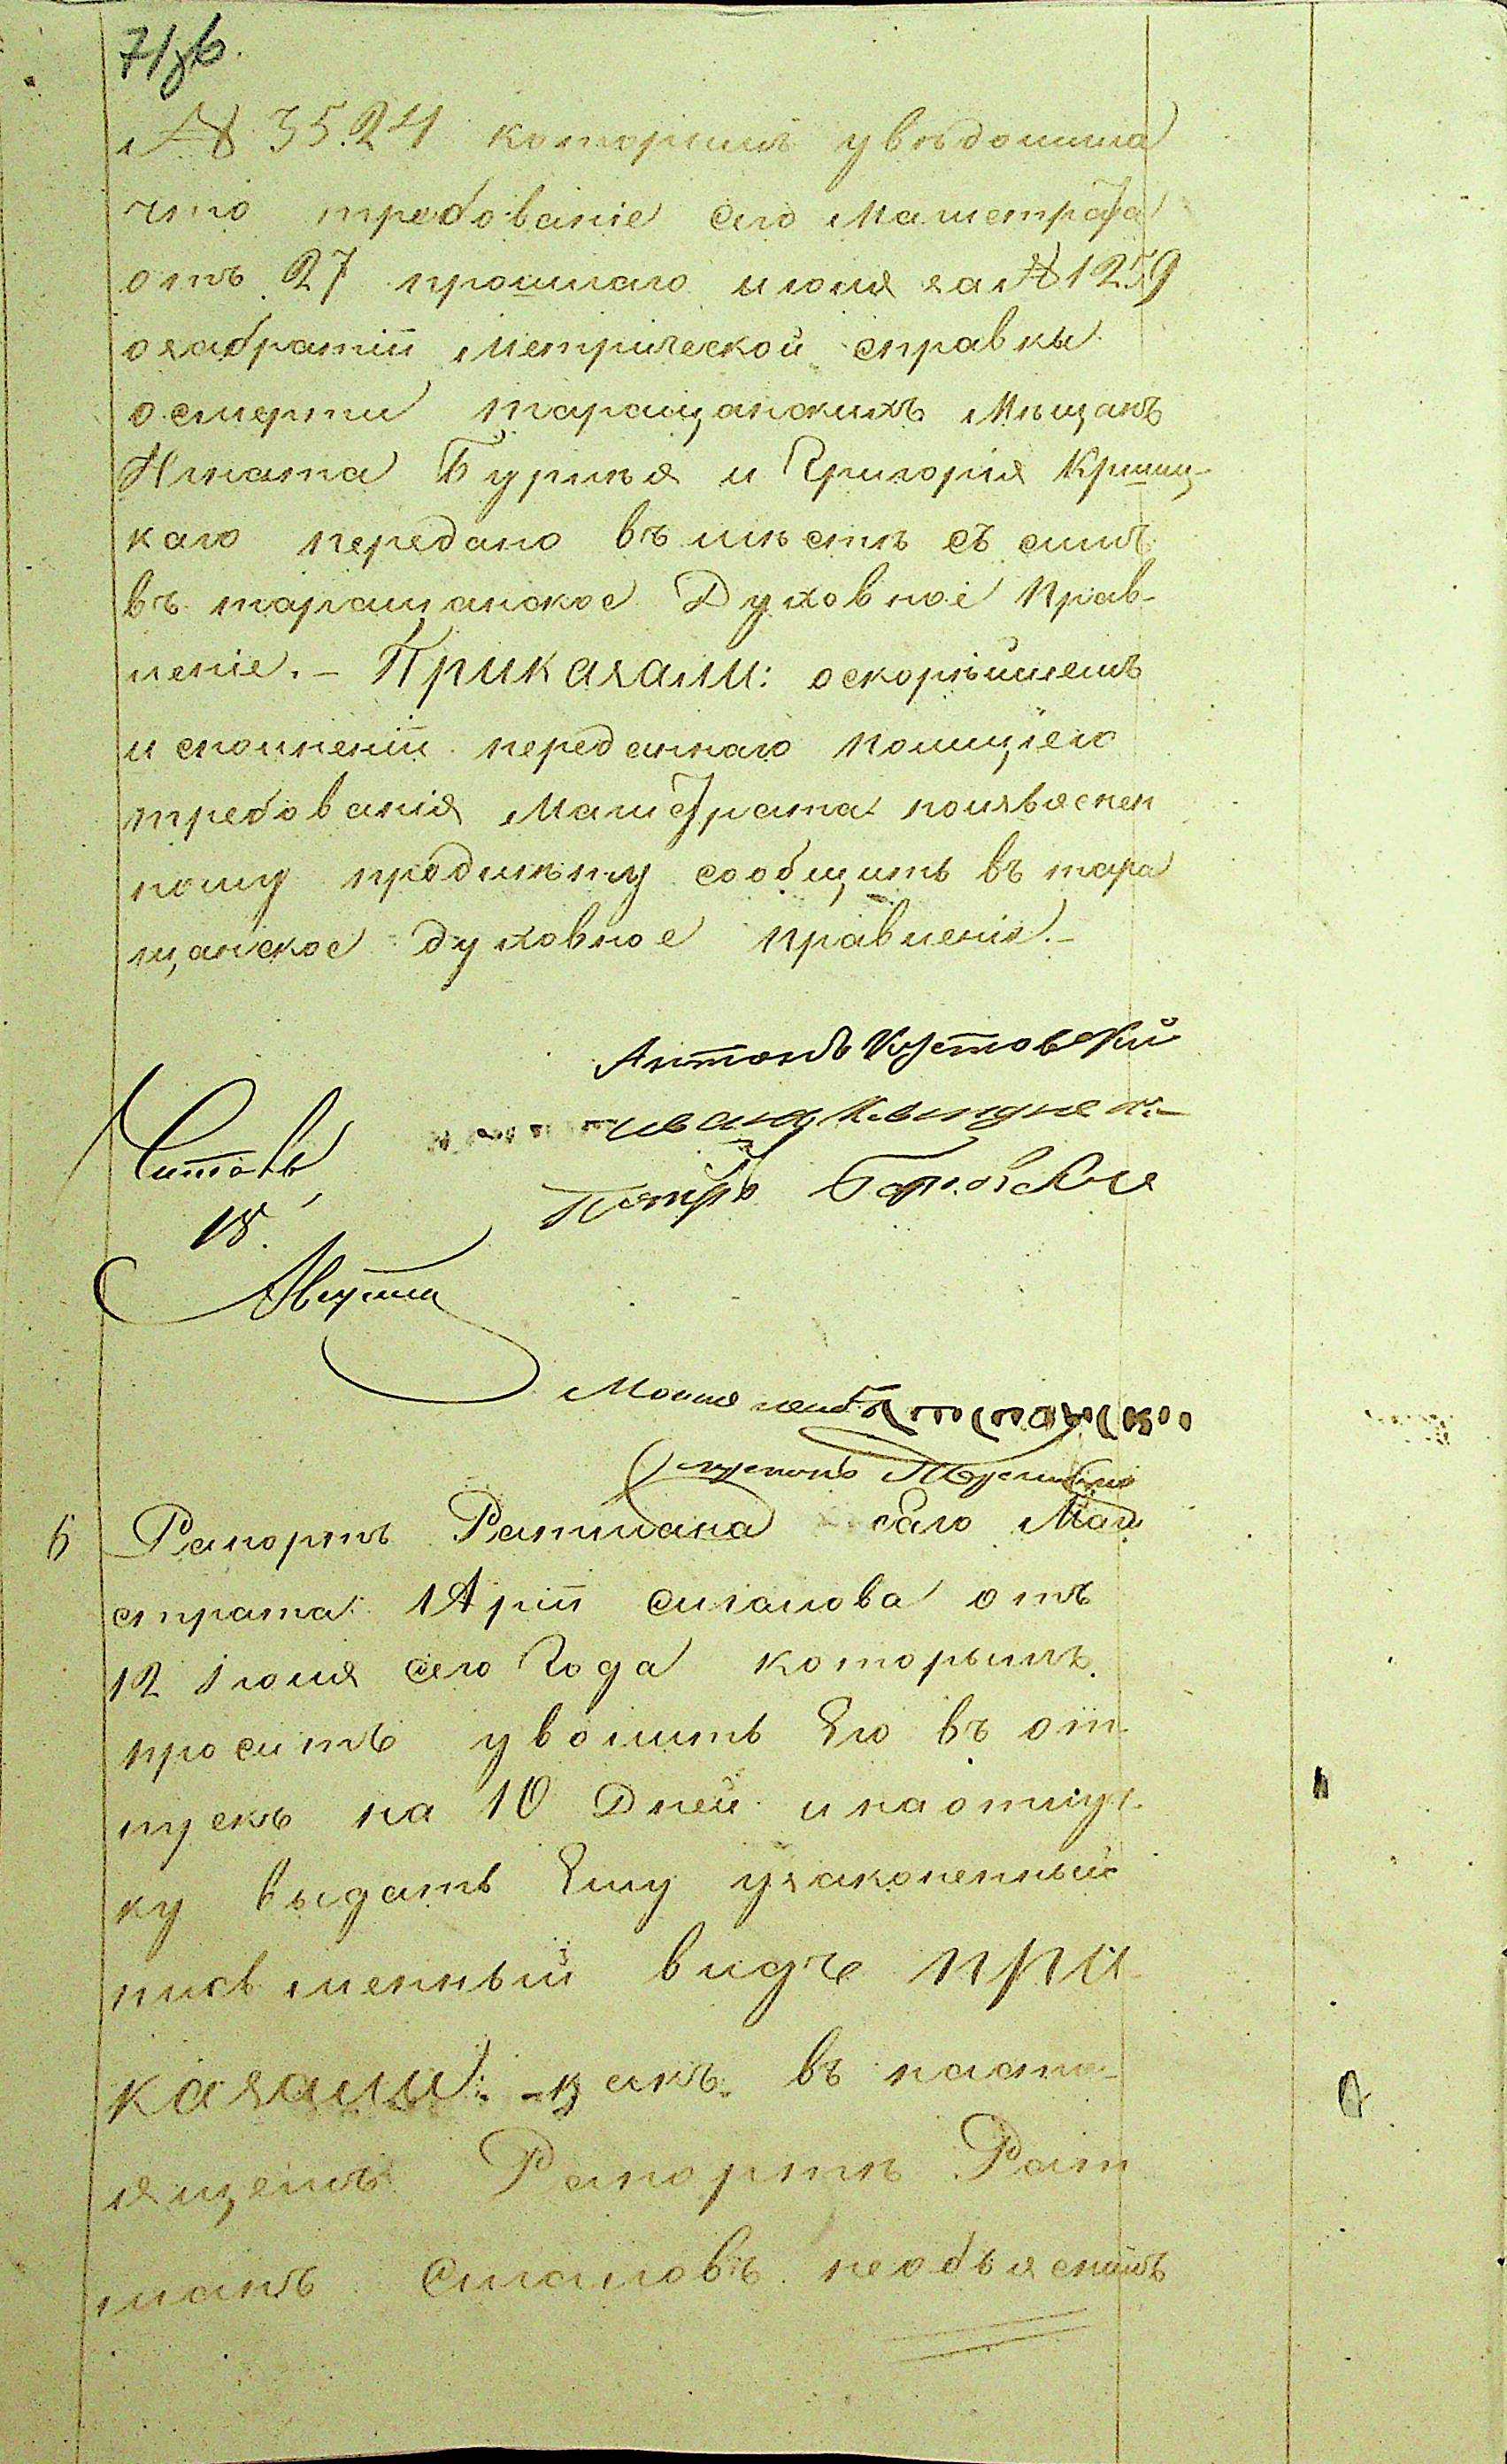 71 зв.
№ 3524 которымъ увѣдомила
что требованіе сего Магистрата
отъ 27 прошлаго июля за № 1259
озабратіи Метрической справки
о смерти таращанскихъ Мѣщанъ
Игната и Григорія
каго передано въ мѣстѣ съ симъ
въ таращанское Духовное Прав-
леніе. – Приказали: оскорѣйшемъ
исполненіи переданнаго полициею
требованія Магистрата поизъяснен
ному предмѣту сообщить въ тара
щанское духовное правленіе. –
Антонъ Кустовский
Иванъ
Петръ
Читалъ
18
Августа
6 Рапортъ Ратмана сего Маги
страта Арiи сигалова отъ
12 Iюля сего Года которымъ
проситъ уволить Его въ от-
пускъ на 10 Дней инаотлуч-
ку выдать Ему узаконенный
письменный видъ при-
казали: – какъ въ насто-
ящемъ Рапортѣ Рат
манъ Сигаловъ необъяснилъ